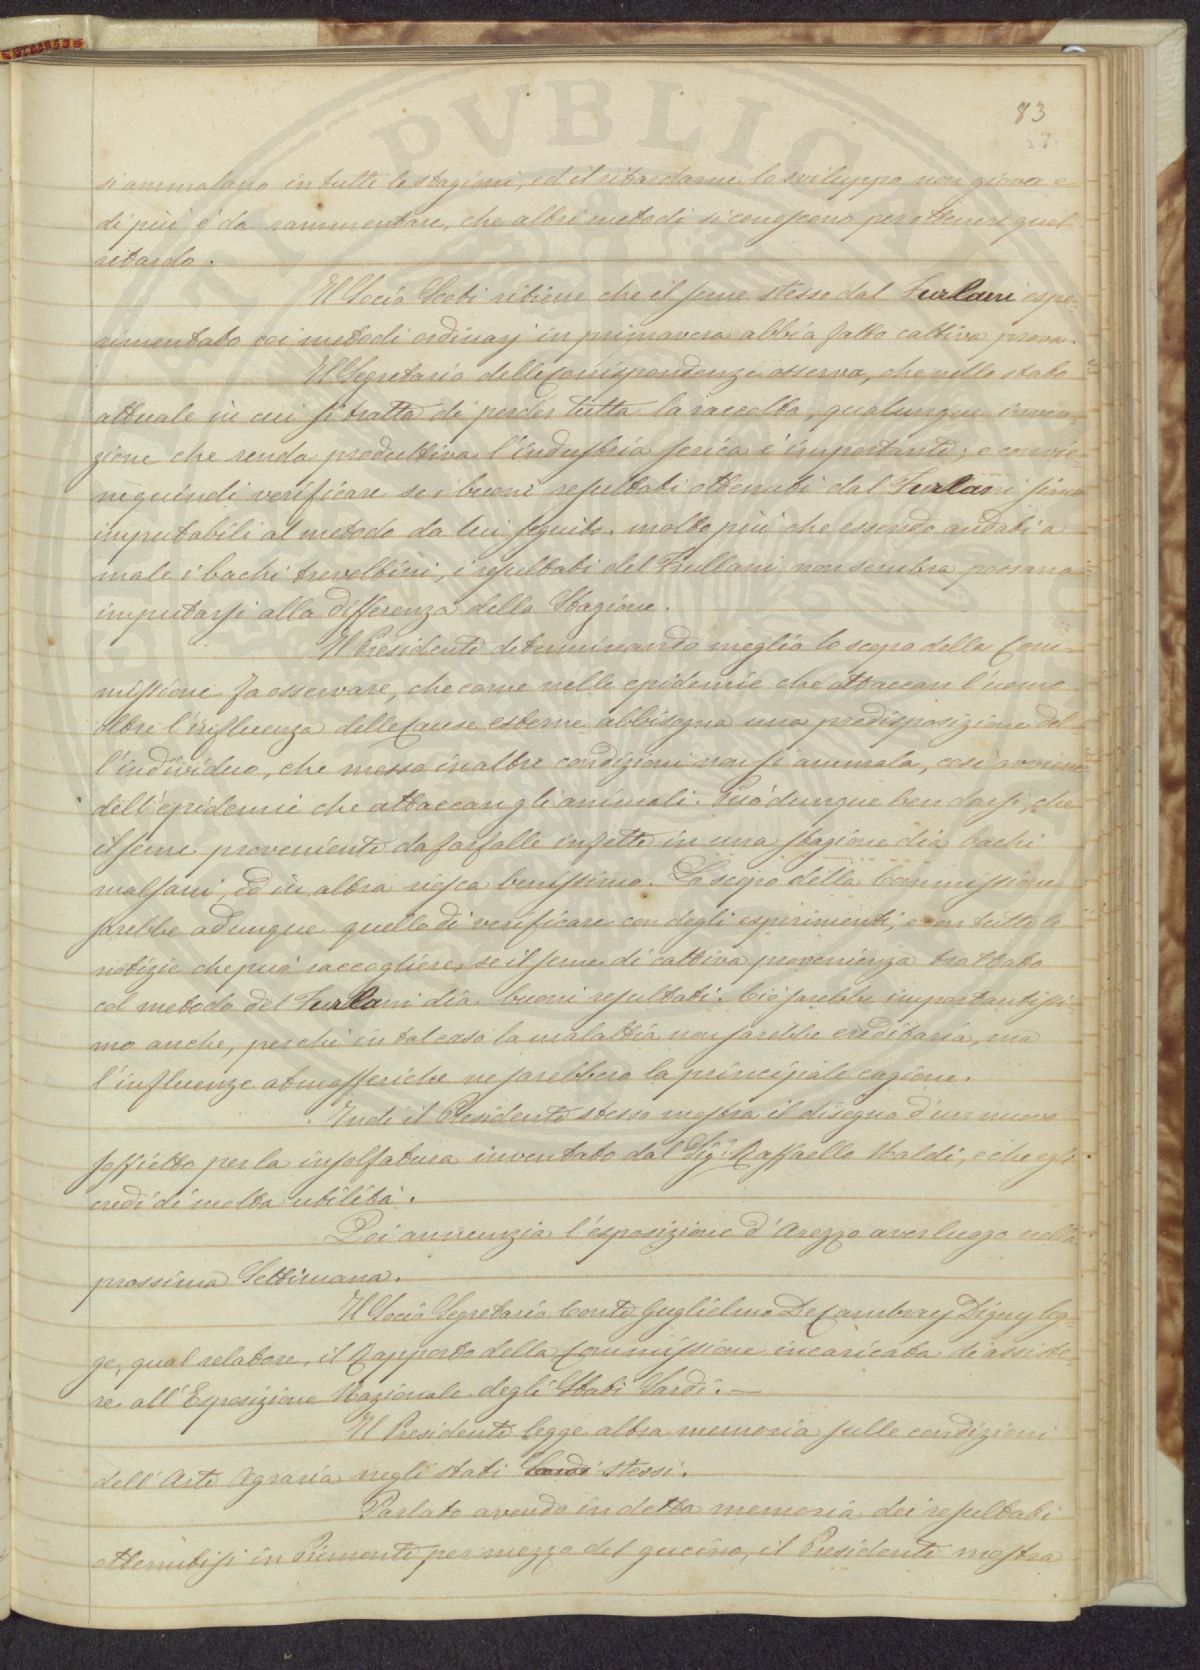 PVBLICA
83
47
si ammalano in tutte le stagioni, ed il ritardarne lo sviluppo non giova e
di più è da rammentare, che altri metodi si conoscono per ottenere quel
ritardo.
Il Socio Scoti ritiene che il seme stesso dal Furlani espe-
rimentato coi metodi ordinarj in primavera abbia fatto cattiva prova.
Il Segretario delle Corrispondenze osserva, che nello stato
attuale in cui si tratta di perder tutta la raccolta, qualunque inven-
zione che renda produttiva l'industria serica è importante; e convie-
ne quindi verificare se i buoni resultati ottenuti dal Furlani sieno
imputabili al metodo da lui seguito. molto più che essendo andati a
male i bachi trevoltini, i resultati del Frullani non sembra possano
imputarsi alla differenza della Stagione.
Il Presidente determinando meglio lo scopo della Com-
missione fa osservare, che come nelle epidemie che attaccan l'uomo
oltre l'influenza delle Cause esterne abbisogna una predisposizione del-
l'individuo, che messo in altre condizioni non si ammala, così avviene
dell'epidemie che attaccan gli animali. Può dunque ben darsi, che
il seme proveniente da farfalle infette in una stagione dia bachi
malsani, ed in altra riesca benissimo. Lo scopo della Commissione
sarebbe adunque quello di verificare con degli esperimenti, e con tutte le
notizie che può raccogliere, se il seme di cattiva provenienza trattato
col metodo del Furlani dia buoni resultati. Ciò sarebbe importantissi-
mo anche, perchè in tal caso la malattia non sarebbe ereditaria, ma
l'influenze atmosferiche ne sarebbero la principale cagione.
Indi il Presidente stesso mostra il disegno d'un nuovo
soffietto per la insolfatura inventato dal Sig.r Raffaello Maldi, e che egli
crede di molta utilità.
Poi annunzia l'esposizione d'Arezzo aver luogo nella
prossima Settimana.
Il Socio Segretario Conte Guglielmo De Cambray Digny leg-
ge, qual relatore, il Rapporto della Commissione incaricata di assiste-
re all'Esposizione Nazionale degli Stati Sardi. —
Il Presidente legge altra memoria sulle condizioni
dell'Arte Agraria negli stati Sardi stessi.
Parlato avendo in detta memoria dei resultati
ottenutisi in Piemonte per mezzo del guano, il Presidente mostra